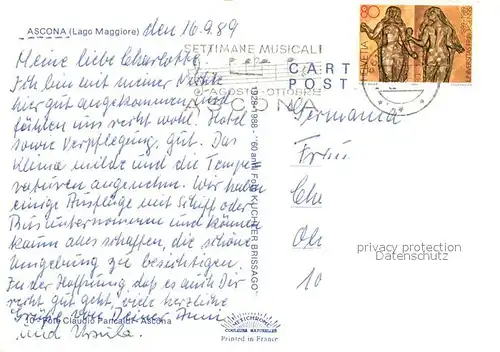 ASCONA (Lago Maggiore)
den 16.9.89
Meine liebe Charlotte,
Ich bin mit meiner Nichte
hier gut angekommen und
fühlen uns recht wohl. Hotel
sowie Verpflegung, gut. Das
Klima milde und die Tempe-
raturen angenehm. Wir haben
einige Ausflüge mit Schiff oder
Bus unternommen und können
kaum alles schaffen, die schöne
Umgebung zu besichtigen.
In der Hoffnung, daß es auch Dir
recht gut geht, viele herzliche
Grüße von Deiner Anni
und Ursula.
10 - Foto Claudio Pancaldi - Ascona
1928-1988 - "60 anni Foto KÜCHLER BRISSAGO"
SETTIMANE MUSICALI
AGOSTO-OTTOBRE
ASCONA
CART
POST
80
HELVETIA
Germania
Frau
Ch
Ol
10
privacy protection
Datenschutz
MEXICHROME
COULEURS NATURELLES
Printed in France